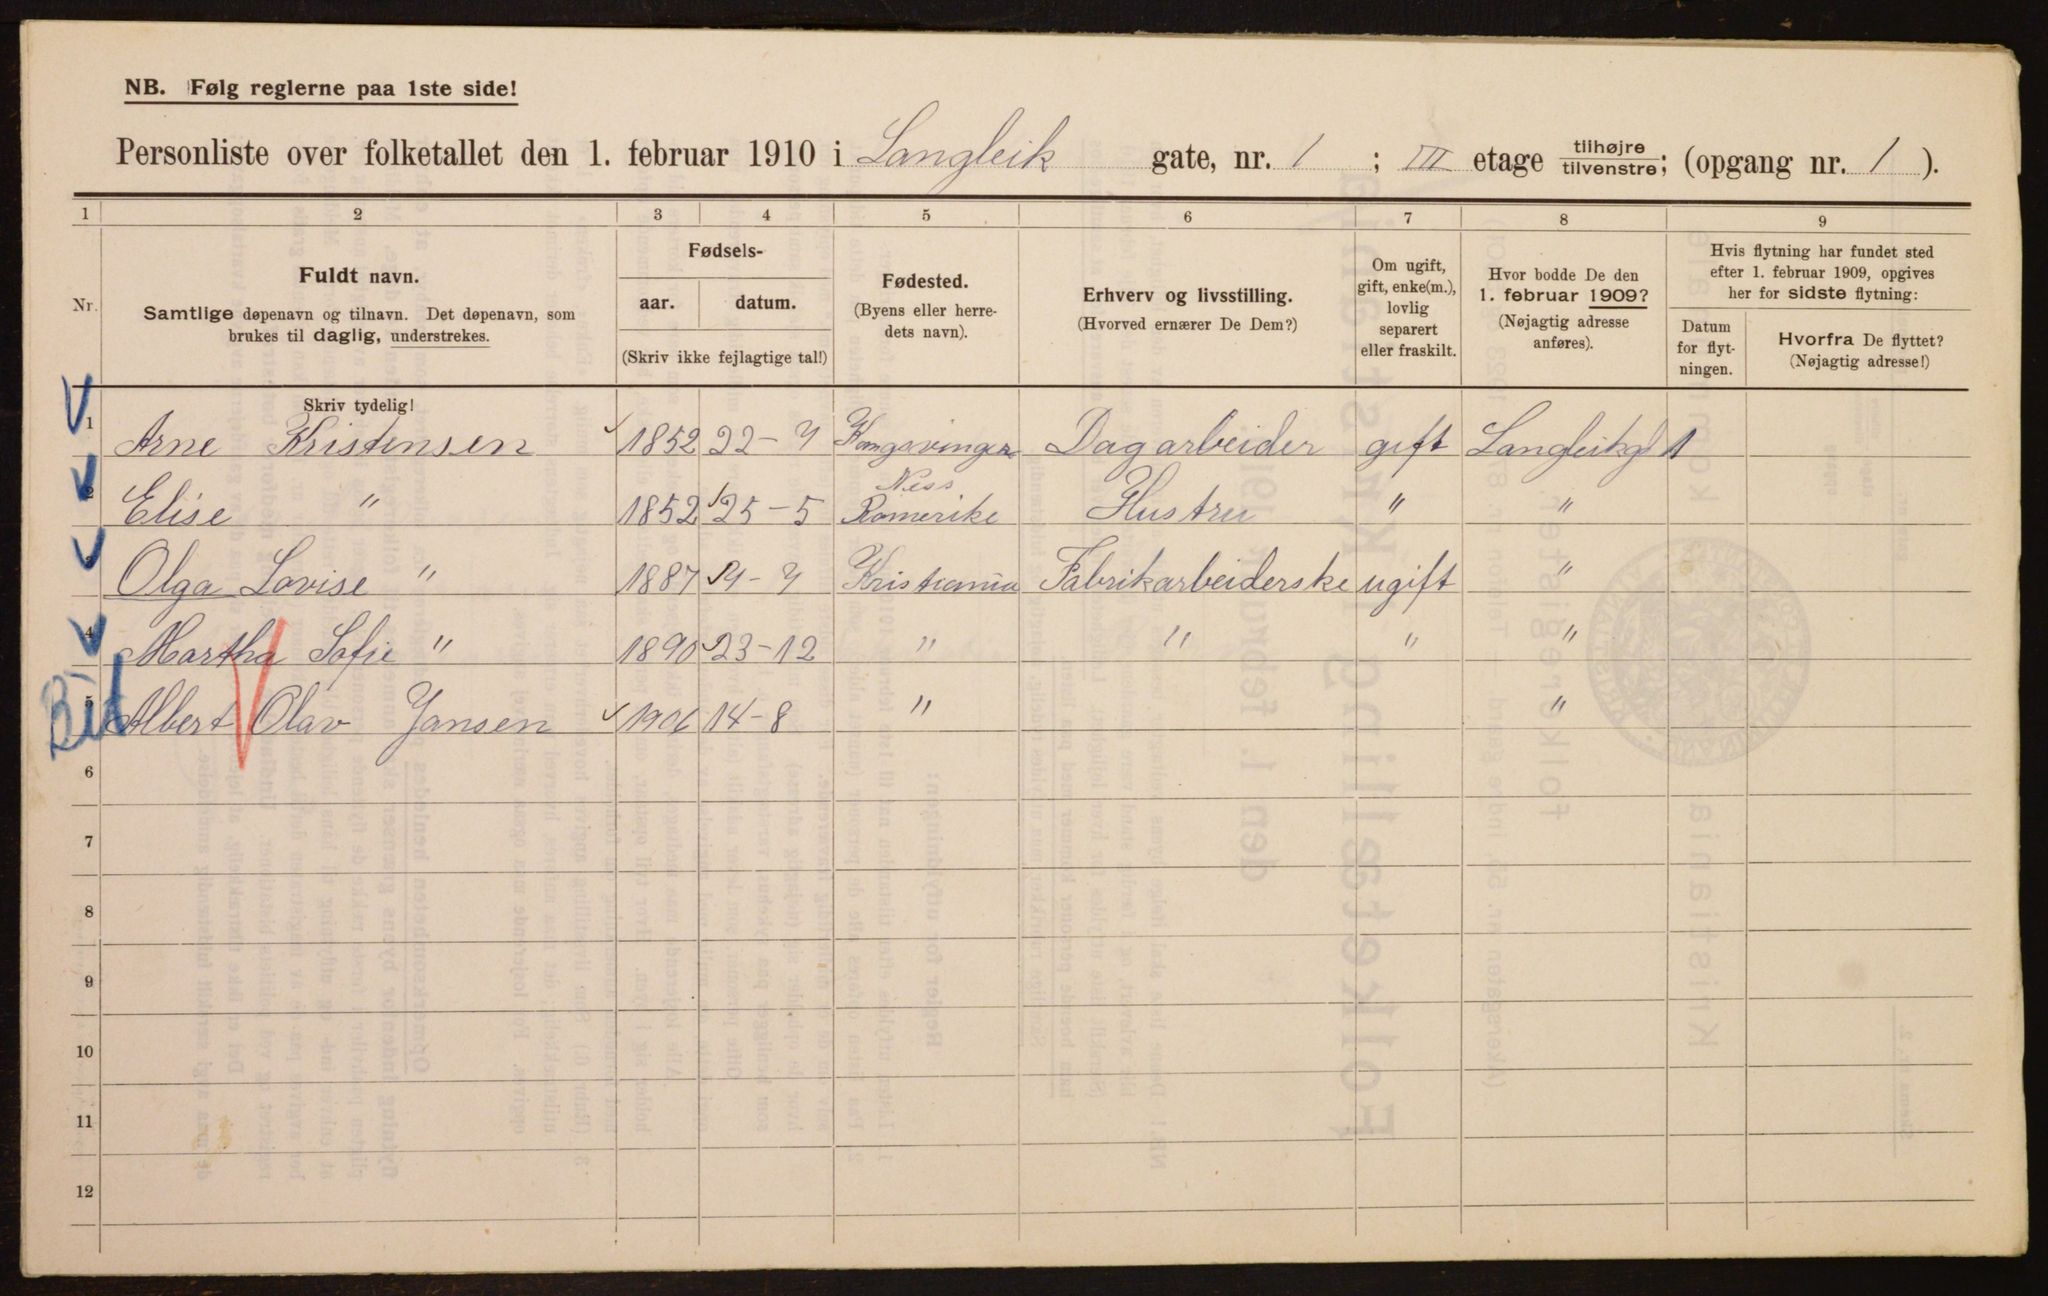 NB. Følg reglerne paa 1ste side!
Personliste over folketallet den 1. februar 1910 i Langleik gate, nr. 1 ; III etage tilhøjre/tilvenstre; (opgang nr. 1 ).
1 2 3 4 5 6 7 8 9
Nr.
Fuldt navn.
Samtlige døpenavn og tilnavn. Det døpenavn, som
brukes til daglig, understrekes.
Fødsels-
aar. datum.
(Skriv ikke fejlagtige tal!)
Fødested.
(Byens eller herre-
dets navn).
Erhverv og livsstilling.
(Hvorved ernærer De Dem?)
Om ugift,
gift, enke(m.),
lovlig
separert
eller fraskilt.
Hvor bodde De den
1. februar 1909?
(Nøjagtig adresse
anføres).
Hvis flytning har fundet sted
efter 1. februar 1909, opgives
her for sidste flytning:
Datum
for flyt-
ningen.
Hvorfra De flyttet?
(Nøjagtig adresse!)
Skriv tydelig!
1 Arne Kristensen 1852 22-7 Kongsvinger Dagarbeider gift Langleikgt 1
2 Elise " 1852 25-5 Ness Romerike Hustru " "
3 Olga Lovise " 1887 4-7 Kristiania Fabrikarbeiderske ugift "
4 Martha Sofie " 1890 23-12 " " " "
5 Albert Olav Jansen 1906 14-8 " "
6
7
8
9
10
11
12